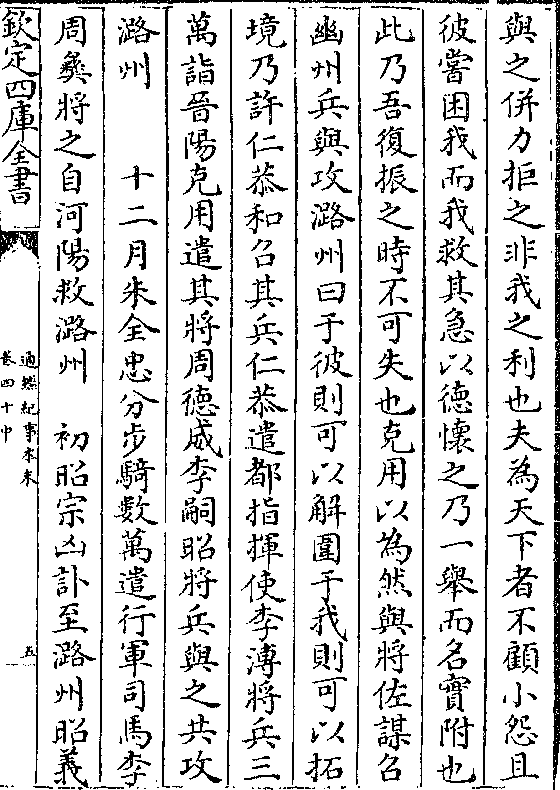 與之併力拒之非我之利也夫為天下者不顧小怨且
彼嘗困我而我救其急以德懷之乃一舉而名實附也
此乃吾復振之時不可失也克用以為然與將佐謀召
幽州兵與攻潞州曰于彼則可以解圍于我則可以拓
境乃許仁恭和召其兵仁恭遣都指揮使李溥將兵三
萬詣晉陽克用遣其將周德威李嗣昭將兵與之共攻
潞州　　十二月朱全忠分步騎數萬遣行軍司馬李
周彝將之自河陽救潞州　初昭宗凶訃至潞州昭義
欽定四庫全書
通鑑紀事本末
卷四十中
五